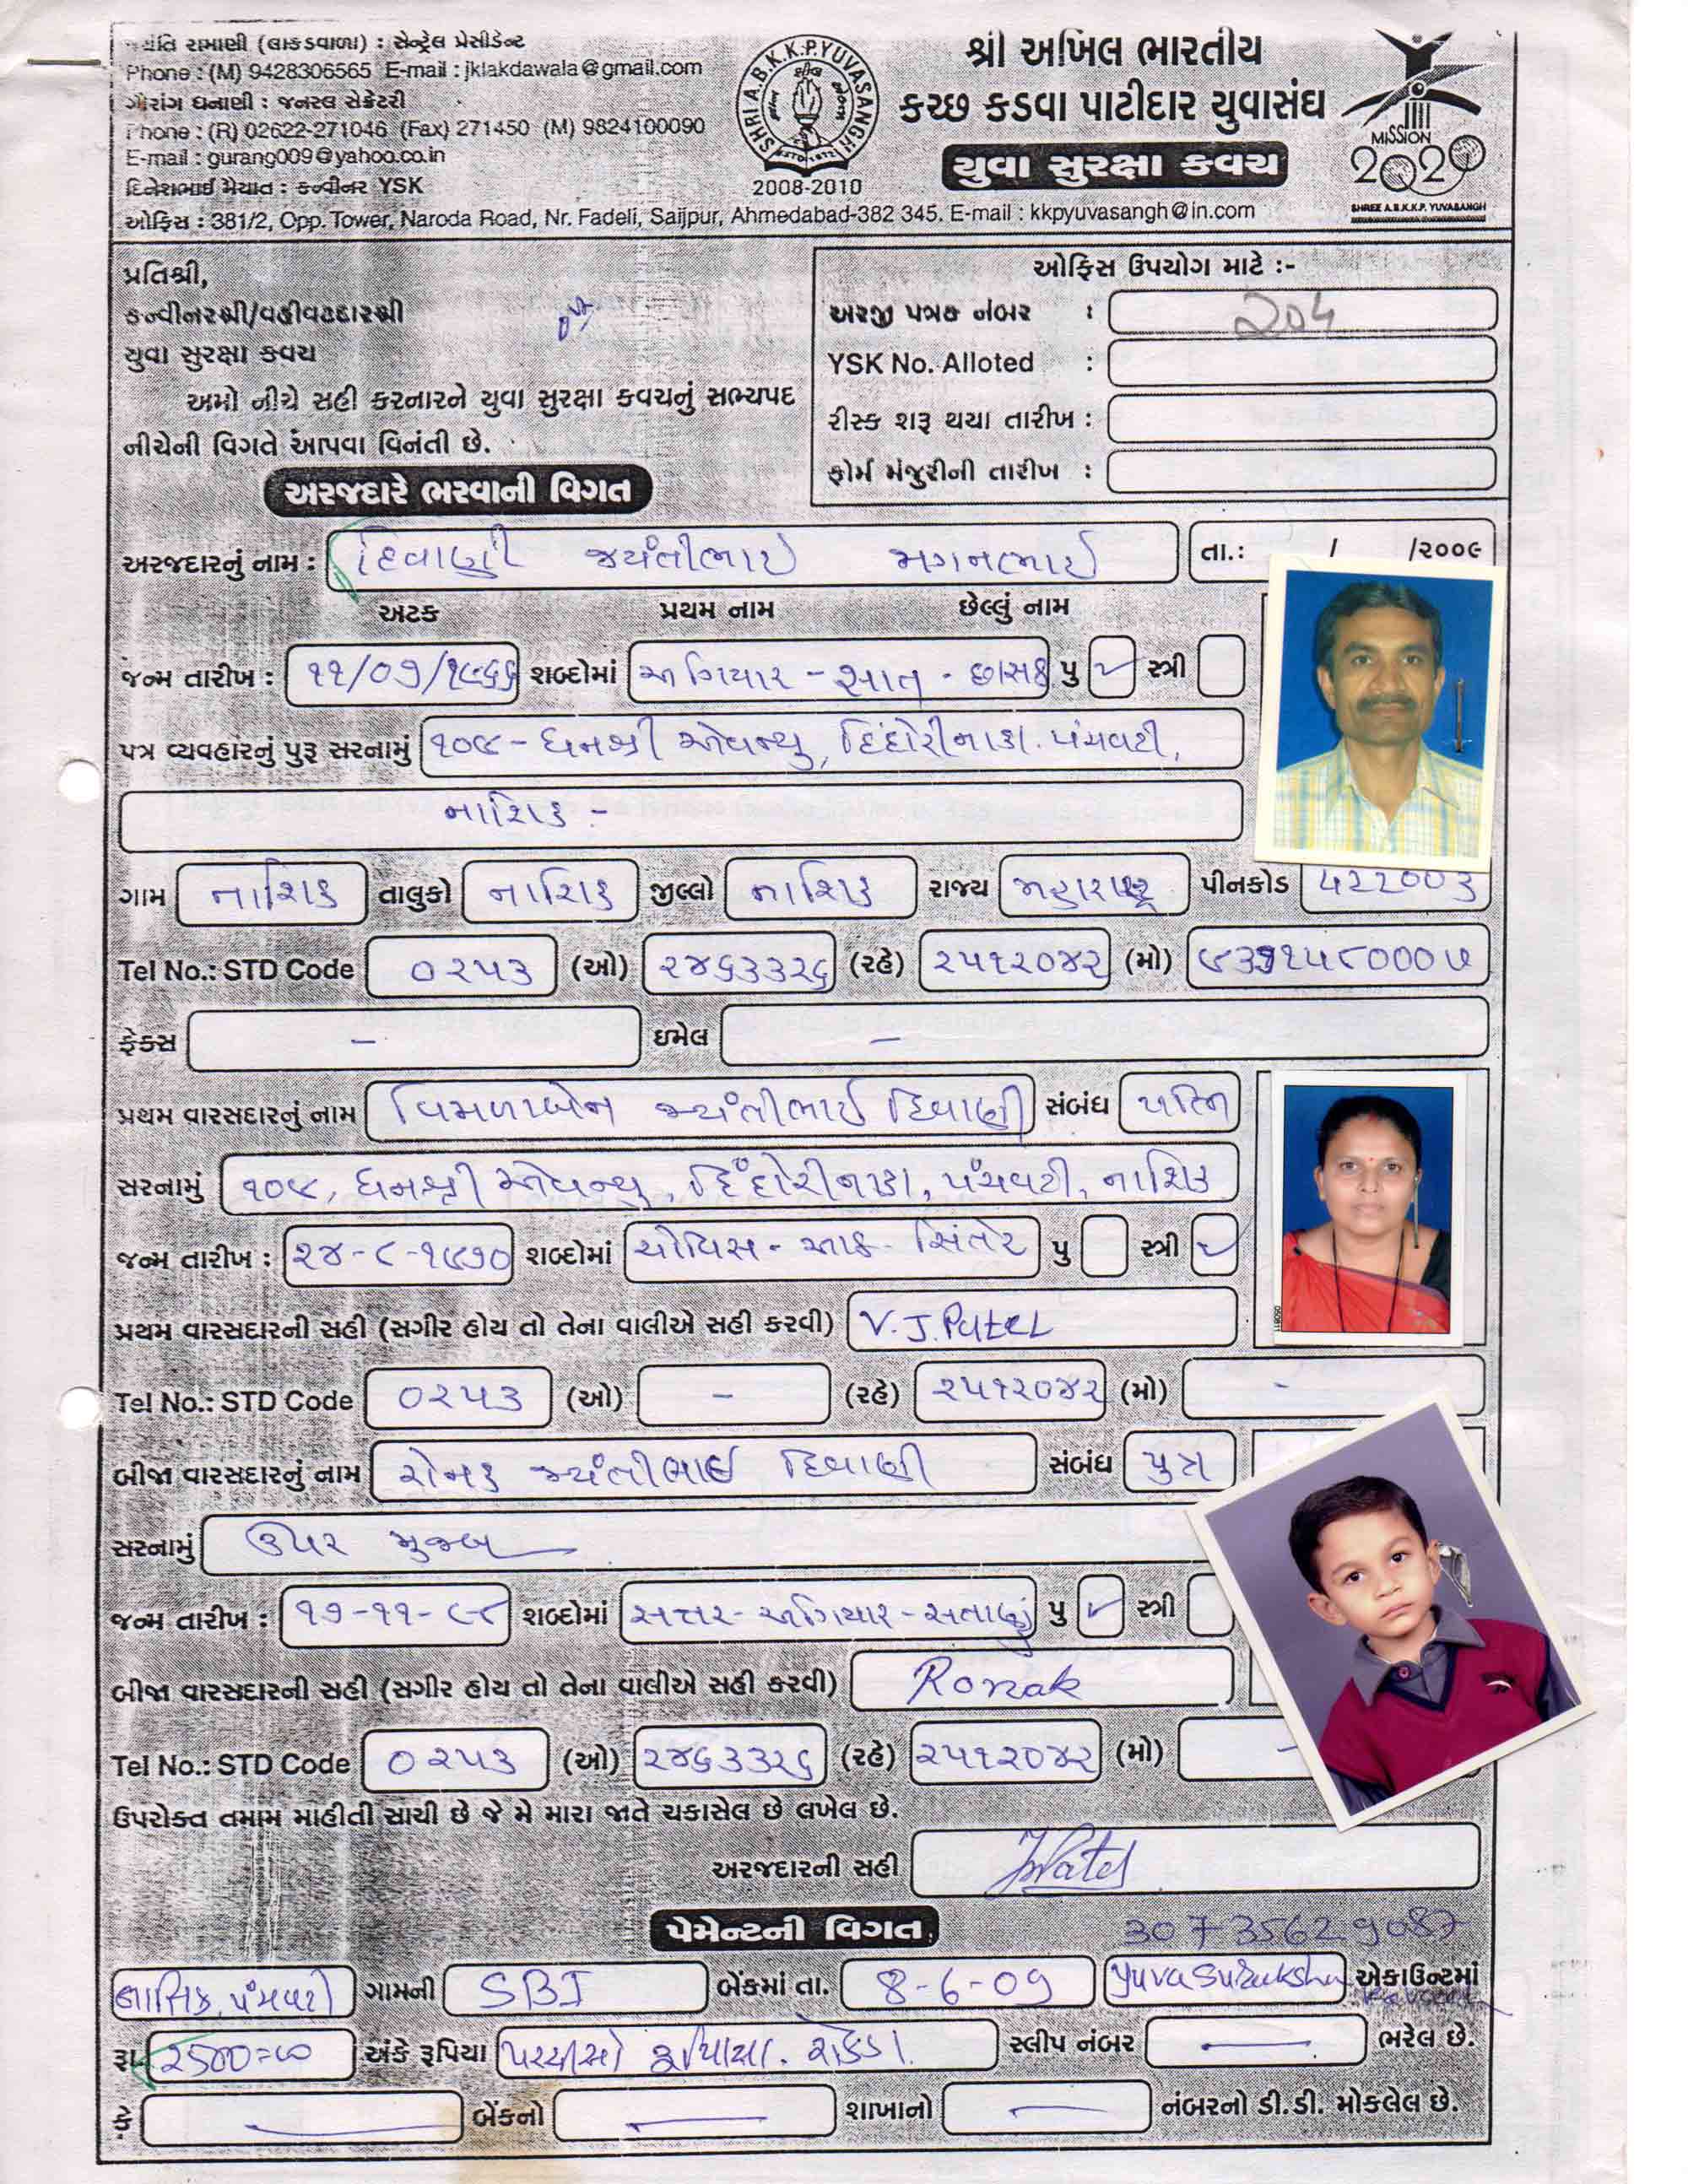 જયંતિ રામાણી (લાકડાવાળા) : સેન્ટ્રેલ પ્રેસીડેન્ટ
Phone : (M) 9428306565 E-mail : jklakdawala@gmail.com
ગૌરાંગ ધનાણી : જનરલ સેક્રેટરી
Phone : (R) 02622-271046 (Fax) 271450 (M) 9824100090
E-mail : gurang009@yahoo.co.in
દિનેશભાઈ મૈયાત : કન્વીનર YSK
ઓફિસ : 381/2, Opp. Tower, Naroda Road, Nr. Fadeli, Saijpur, Ahmedabad-382 345. E-mail : kkpyuvasangh@in.com
SHRI A.B.K.K.P. YUVASANGH
2008-2010
શ્રી અખિલ ભારતીય
કચ્છ કડવા પાટીદાર યુવાસંઘ
યુવા સુરક્ષા કવચ
MISSION
2020
SHREE A.B.K.K.P. YUVASANGH
પ્રતિશ્રી,
કન્વીનરશ્રી/વહીવટદારશ્રી
યુવા સુરક્ષા કવચ
અમો નીચે સહી કરનારને યુવા સુરક્ષા કવચનું સભ્યપદ
નીચેની વિગતે આપવા વિનંતી છે.
ઓફિસ ઉપયોગ માટે :-
અરજી પત્રક નંબર : 204
YSK No. Alloted :
રીસ્ક શરૂ થયા તારીખ :
ફોર્મ મંજુરીની તારીખ :
અરજદારે ભરવાની વિગત
અરજદારનું નામ : દિવાણી જયંતીભાઈ મગનભાઈ તા.: / /૨૦૦૯
અટક પ્રથમ નામ છેલ્લું નામ
જન્મ તારીખ : ૧૧/૦૭/૧૯૬૬ શબ્દોમાં અગિયાર - સાત - છાસઠ પુ ✓ સ્ત્રી
પત્ર વ્યવહારનું પુરૂ સરનામું ૧૦૯ - ધનશ્રી એવન્યુ, દિંદોરીનાકા. પંચવટી,
નાશિક -
ગામ નાશિક તાલુકો નાશિક જીલ્લો નાશિક રાજ્ય મહારાષ્ટ્ર પીનકોડ ૪૨૨૦૦૩
Tel No.: STD Code ૦૨૫૩ (ઓ) ૨૪૬૩૩૨૬ (રહે) ૨૫૧૨૦૪૨ (મો)
ફેક્સ - ઇમેલ -
પ્રથમ વારસદારનું નામ વિમળાબેન જયંતીભાઈ દિવાણી સંબંધ પત્નિ
સરનામું ૧૦૯, ધનશ્રી એવન્યુ, દિંદોરીનાકા, પંચવટી, નાશિક
જન્મ તારીખ : ૨૪-૮-૧૯૭૦ શબ્દોમાં ચોવિસ - આઠ - સિંતેર પુ સ્ત્રી ✓
પ્રથમ વારસદારની સહી (સગીર હોય તો તેના વાલીએ સહી કરવી) V. J. Patel
Tel No.: STD Code ૦૨૫૩ (ઓ) - (રહે) ૨૫૧૨૦૪૨ (મો) -
બીજા વારસદારનું નામ રોનક જયંતીભાઈ દિવાણી સંબંધ પુત્ર
સરનામું ઉપર મુજબ
જન્મ તારીખ : ૧૭-૧૧-૯૮ શબ્દોમાં સત્તર - અગિયાર - સતાણું પુ ✓ સ્ત્રી
બીજા વારસદારની સહી (સગીર હોય તો તેના વાલીએ સહી કરવી) Ronak
Tel No.: STD Code ૦૨૫૩ (ઓ) ૨૪૬૩૩૨૬ (રહે) ૨૫૧૨૦૪૨ (મો) -
ઉપરોક્ત તમામ માહીતી સાચી છે જે મે મારા જાતે ચકાસેલ છે લખેલ છે.
અરજદારની સહી JPatel
પેમેન્ટની વિગત 30735629087
નાસિક, પંચવટી ગામની SBI બેંકમાં તા. 8-6-09 Yuva Suraksha એકાઉન્ટમાં
રૂા. ૨500=૦૦ અંકે રૂપિયા પચ્ચીસો રૂપિયા. રોકડા. સ્લીપ નંબર - ભરેલ છે.
કે - બેંકનો - શાખાનો - નંબરનો ડી.ડી. મોકલેલ છે.